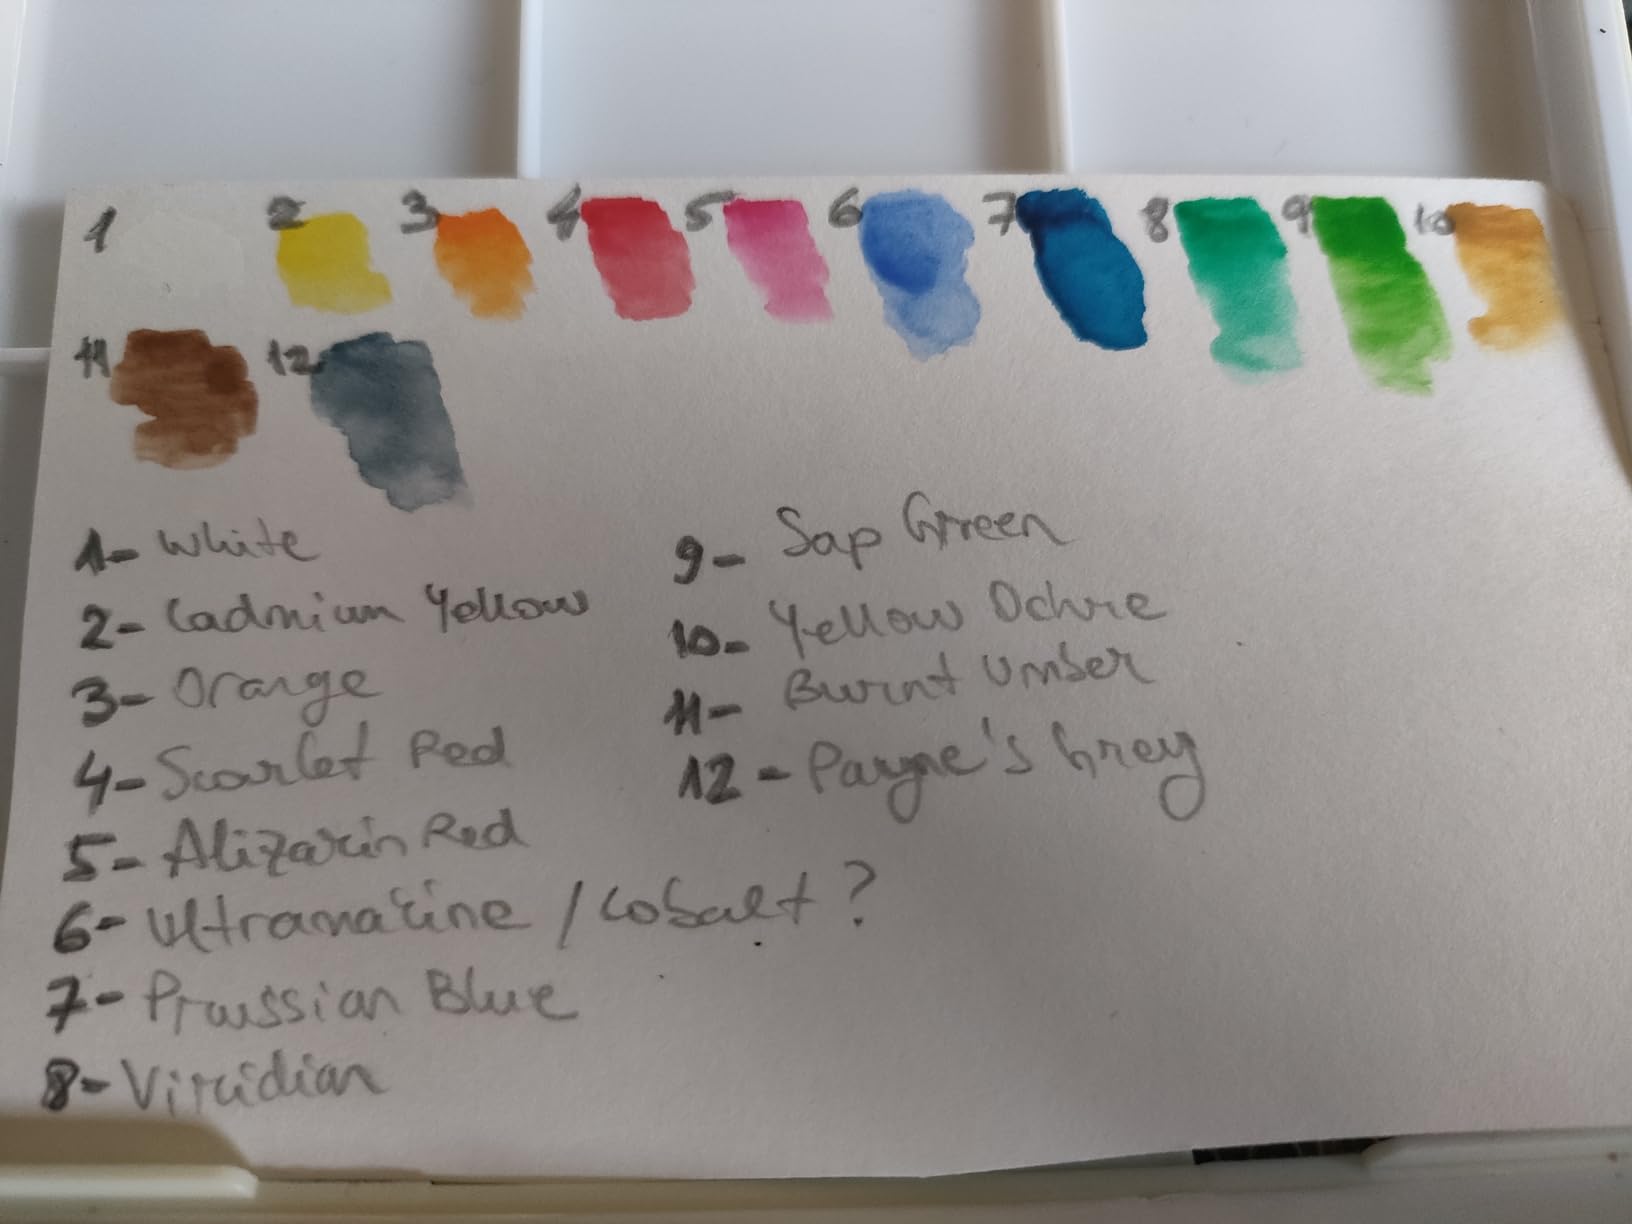 1 2 3 4 5 6 7 8 9 10
11 12
1- White
2- Cadmium Yellow
3- Orange
4- Scarlet Red
5- Alizarin Red
6- Ultramarine / Cobalt ?
7- Prussian Blue
8- Viridian
9- Sap Green
10- Yellow Ochre
11- Burnt Umber
12- Payne's Grey